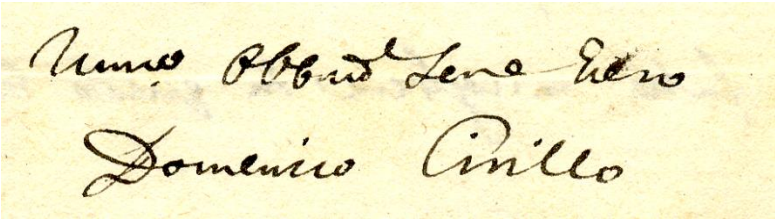 Ummo Obbmo Vero
Domenico Cirillo